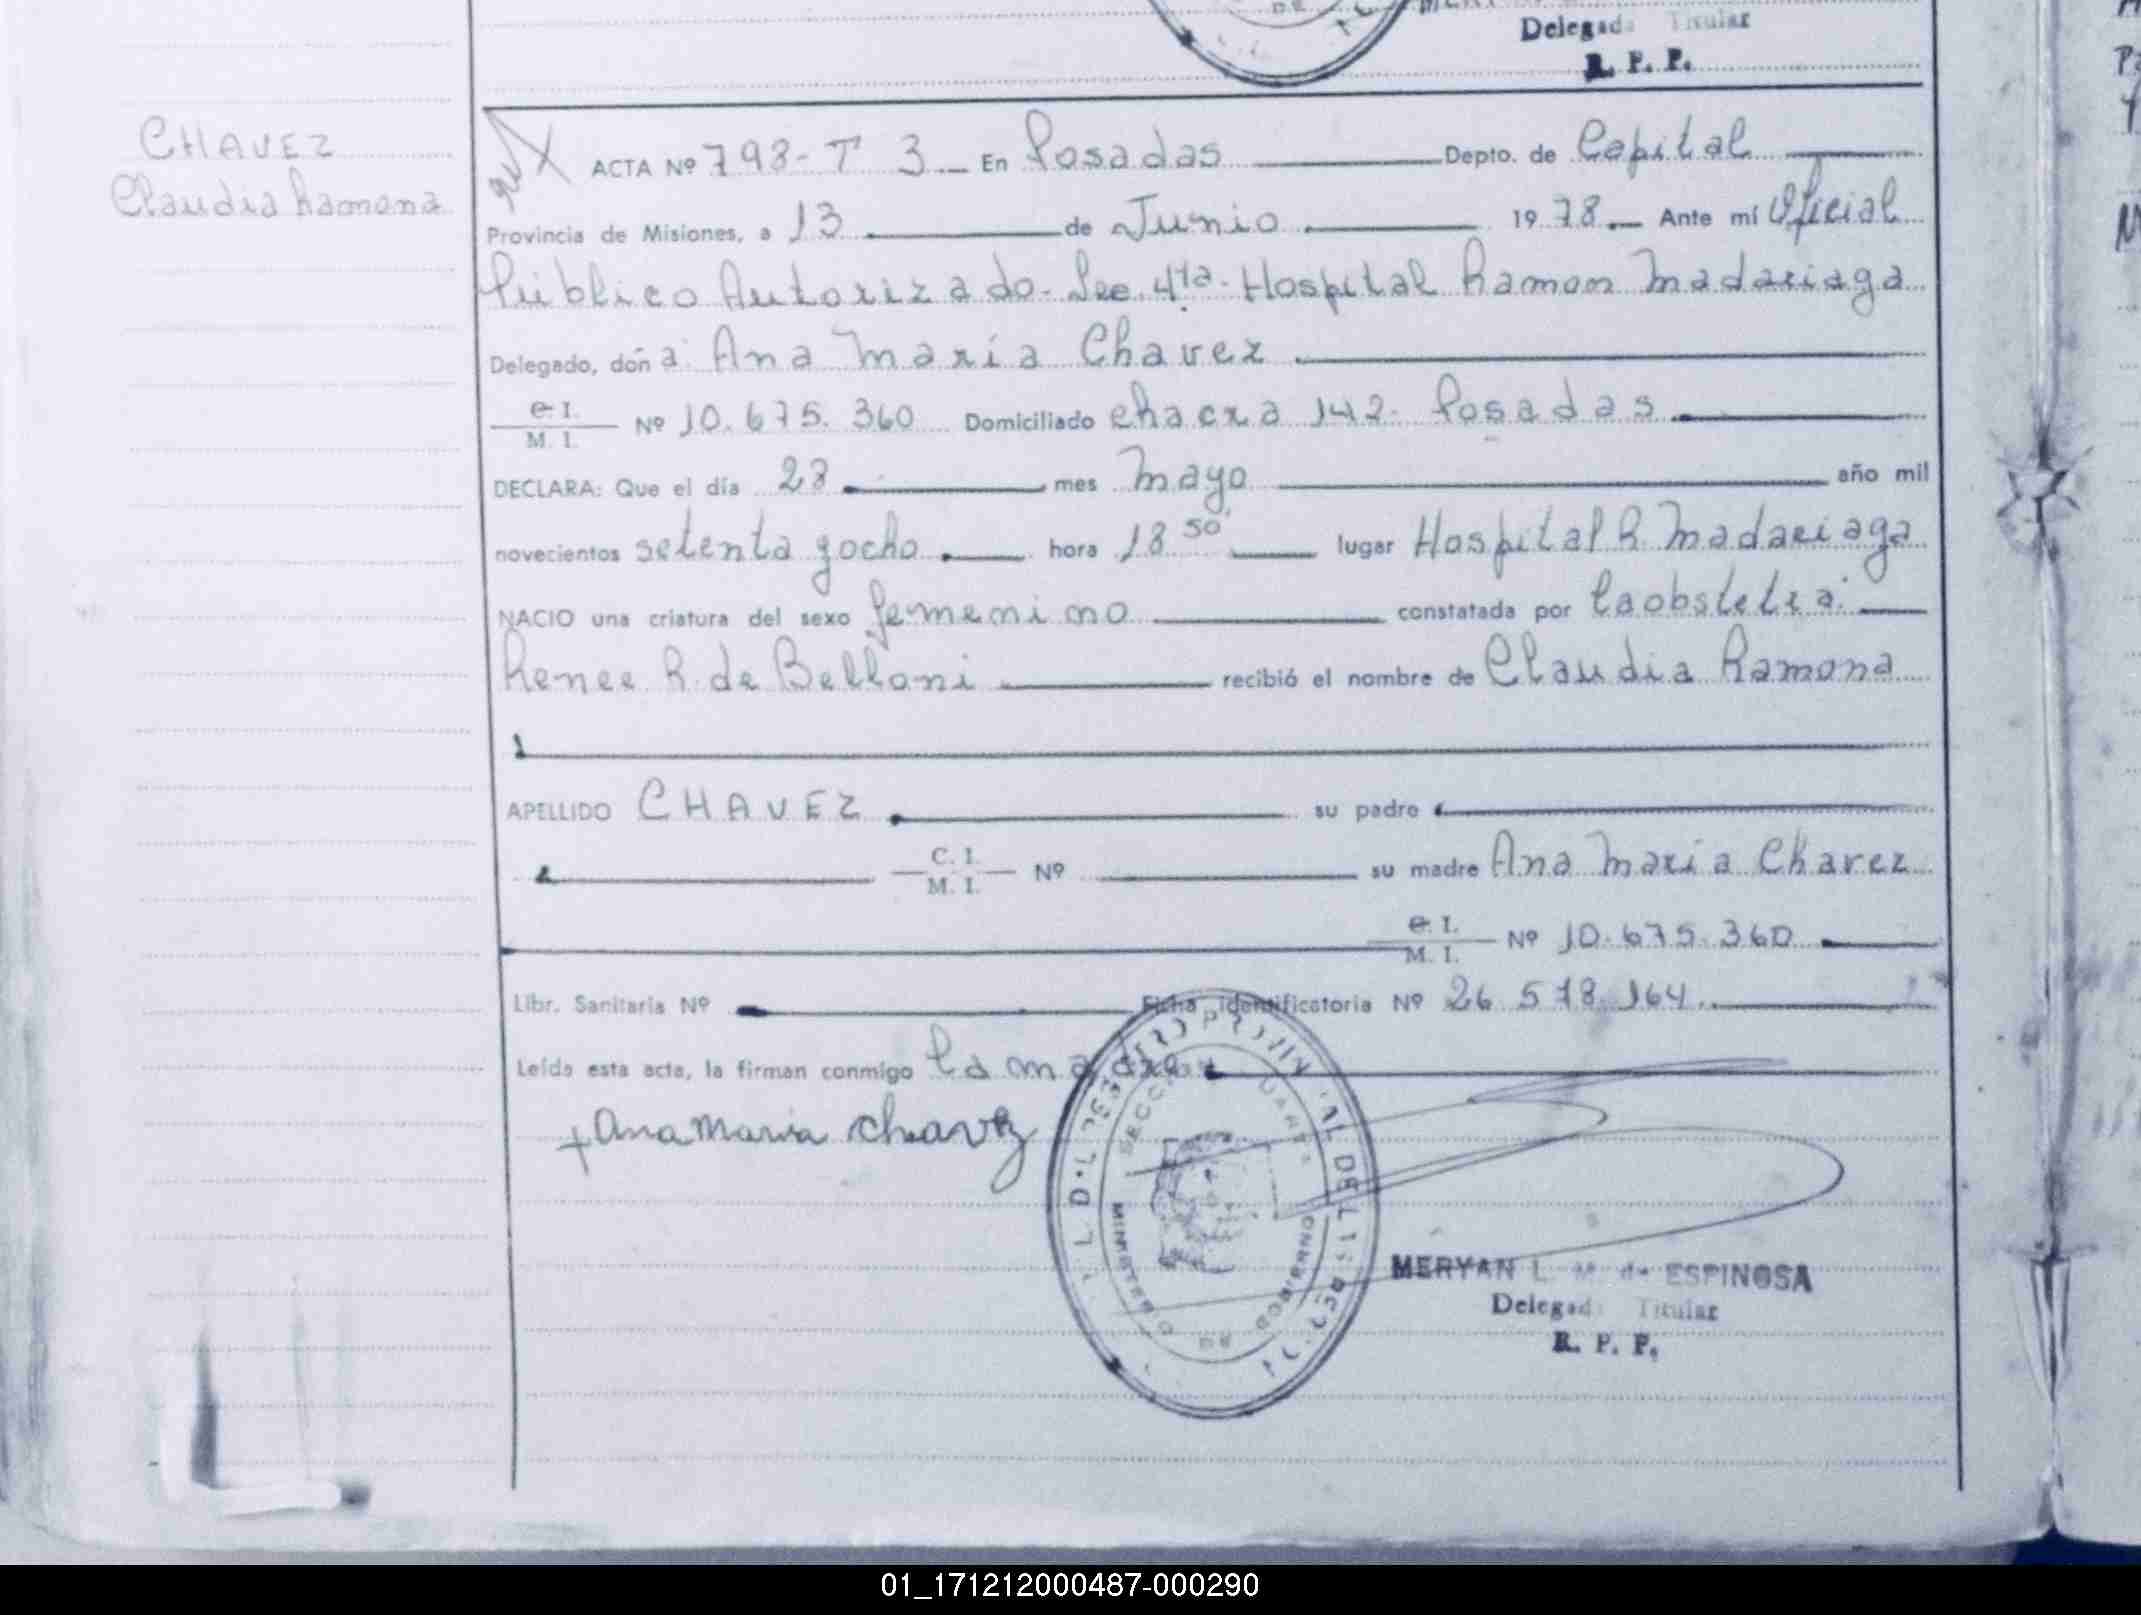 Delegada Titular
R. P. P.
CHAVEZ
Claudia Ramona
ACTA Nº 798-T 3 En Posadas Depto. de Capital
Provincia de Misiones, a 13 de Junio 1978 Ante mí Oficial
Público Autorizado. Sec. 4ta. Hospital Ramon Madariaga
Delegado, doña Ana María Chavez
C. I.
M. I. Nº 10.675.360 Domiciliado chacra 142. Posadas
DECLARA: Que el día 28 mes mayo año mil
novecientos setenta y ocho hora 18 50' lugar Hospital R. Madariaga
NACIO una criatura del sexo femenino constatada por la obstetra
Renee R. de Belloni recibió el nombre de Claudia Ramona
APELLIDO CHAVEZ su padre
C. I.
M. I. Nº su madre Ana María Chavez
C. I.
M. I. Nº 10.675.360
Libr. Sanitaria Nº Ficha Identificatoria Nº 26.578.164
Leída esta acta, la firman conmigo la madre
+ Ana Maria Chavez
MINISTERIO DE GOBIERNO
MERYAN L. M. de ESPINOSA
Delegada Titular
R. P. P.
01_171212000487-000290